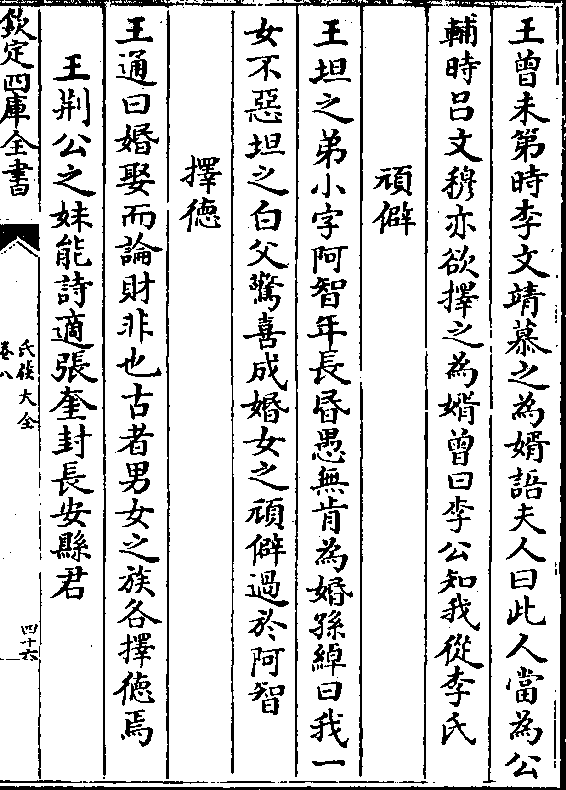 王曾未第時李文靖慕之為婿語夫人曰此人當為公
輔時呂文穆亦欲擇之為婿曾曰李公知我從李氏
頑僻
王坦之弟小字阿智年長昏愚無肯為婚孫綽曰我一
女不惡坦之白父驚喜成婚女之頑僻過於阿智
擇德
王通曰婚娶而論財非也古者男女之族各擇德焉
王荆公之妹能詩適張奎封長安縣君
欽定四庫全書
氏族大全
卷八
四十六